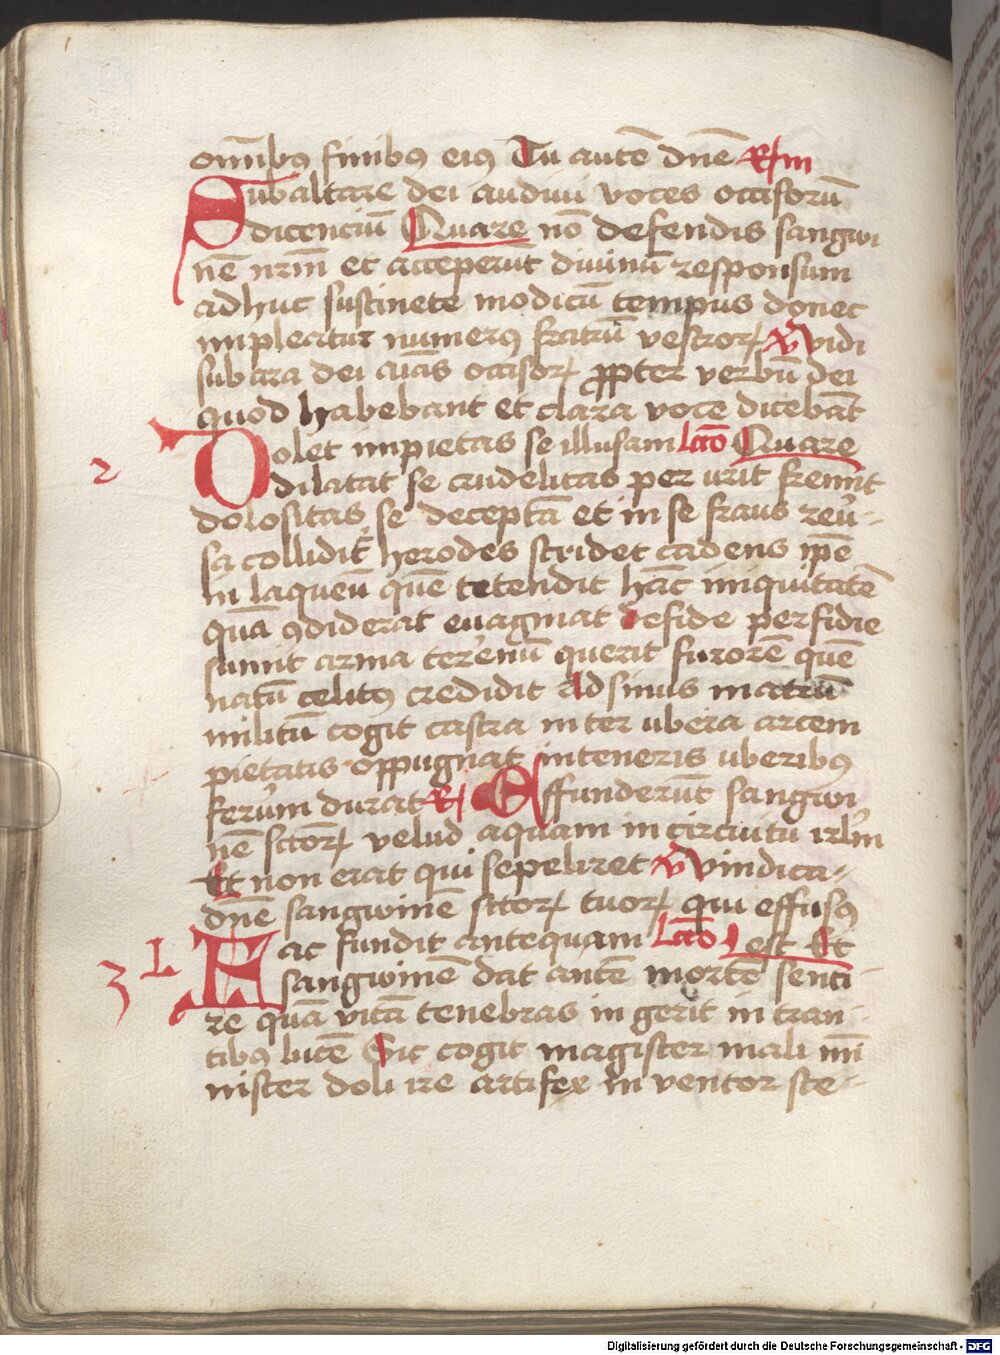 om̄ibꝯ finibꝯ eiꝯ Tu autē dn̄e R̸m
Subaltare dei audiui voces occisorū
dicenciū Quare nō defendis sangwi
nē nr̄m et acceperūt diuinū responsum
adhuc sustinete modicū tempus donec
impleatur numerꝯ fratrū vestroꝝ ℣ vidi
sub ara dei aīas occisoꝝ ꝓpter verbū dei
quod habebant et clara voce dicebāt
2 Dolet impietas se illusam lc̄o Quare
dilatat se crudelitas per urit fremit
dolositas se deceptā et in se fraus reu᷑-
sa collidit᷑ herodes stridet cadens ip̄e
in laqueū quē tetendit hāc iniquitatē
quā ꝯdiderat euaginat de fide perfidie
sumit arma terrenū querit furorē quē
natū celitꝯ credidit Ad sinus matrū
militū cogit castra inter ubera arcem
pietatis oppugnat inteneris uberibꝯ
ferrūm durat R̸ Effunderūt sangwi
nē sctōꝝ velud aquam in circuitu irl᷑m
Et non erat qui sepeliret ℣ vindica-
dn̄e sangwinē sctōꝝ tuoꝝ qui effusꝯ
3 L Hac fundit antequam lc̄o est Et
sangwinē dat antē mortē senti-
re quā vitā tenebras in gerit in tran-
tibꝯ lucē Sic cogit magister mali mī
nister doli ire artifex in ventor sce-
Digitalisierung gefördert durch die Deutsche Forschungsgemeinschaft - DFG